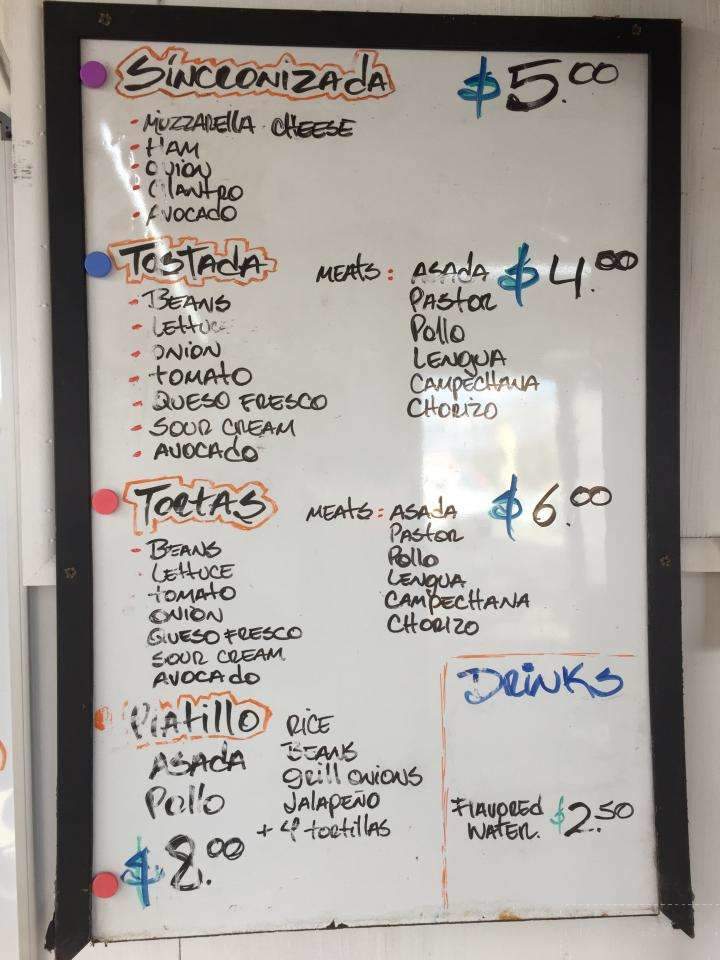 Sincronizada $5.00
- Muzzarella cheese
- Ham
- Onion
- Cilantro
- Avocado
Tostada Meats: Asada $4.00
- Beans Pastor
- Lettuce Pollo
- Onion Lengua
- Tomato Campechana
- Queso Fresco Chorizo
- Sour Cream
- Avocado
Tortas Meats: Asada $6.00
- Beans Pastor
- Lettuce Pollo
Tomato Lengua
Onion Campechana
Queso Fresco Chorizo
Sour Cream
Avocado
Platillo Rice
Asada Beans
Pollo Grill Onions
Jalapeño
+ 4 tortillas
$8.00
Drinks
Flavored Water. $2.50